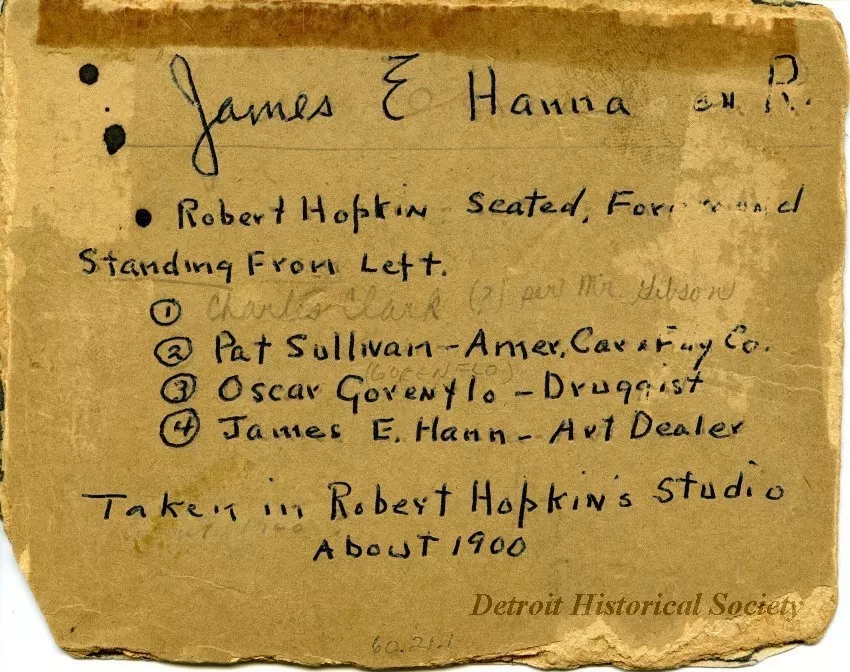 James E Hanna on R.
Robert Hopkin - Seated,
Standing From Left.
① Charles Clark (?) per Mr. Gibson
② Pat Sullivan - Amer. Co.
(GORENFLO)
③ Oscar Gorenylo - Druggist
④ James E. Hann - Art Dealer
Taken in Robert Hopkin's Studio
About 1900
Detroit Historical Society
60.21.1